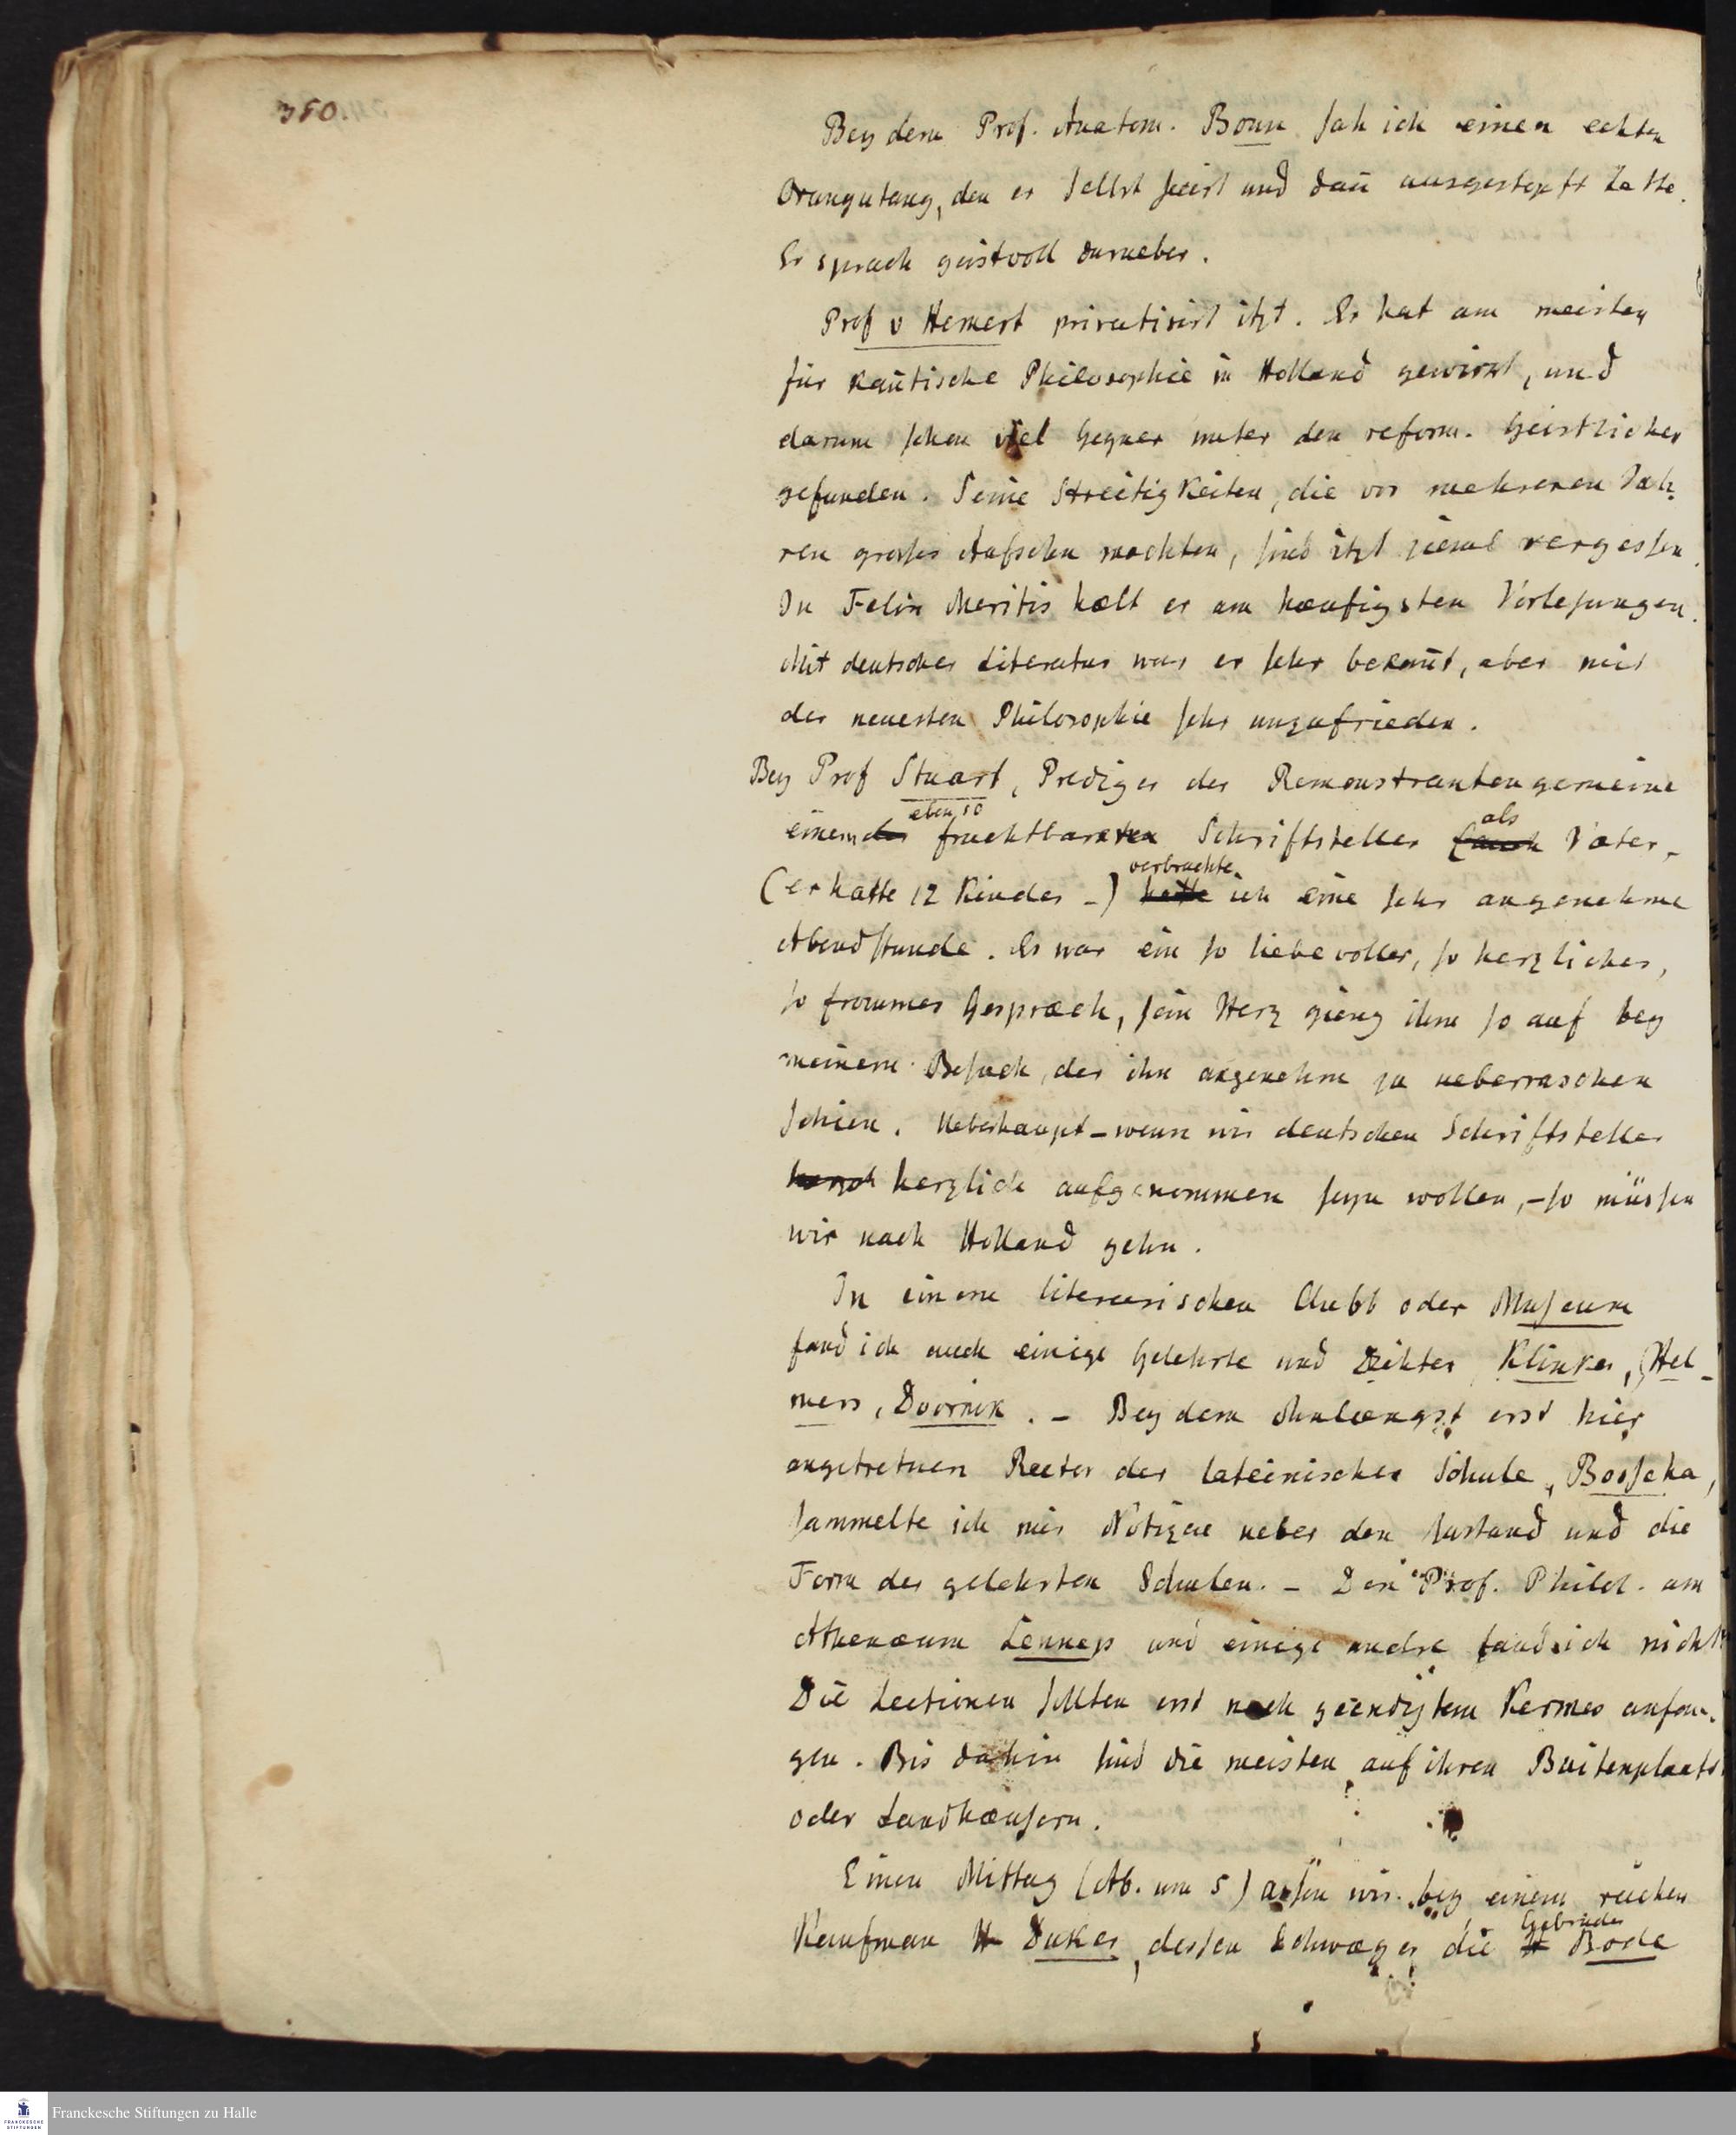 350.
Bey dem Prof. Anatom. Bonn sah ich einen echten
Orangutang, den er selbst secirt und dan̄ ausgestopft hatte.
Er sprach geistvoll darueber.
Prof v Hemert privatisirt itzt. Er hat am meisten
für kan̄tische Philosophie in Holland gewirkt, und
darum schon viel Gegner unter den reform. Geistlichen
gefunden. Seine Streitigkeiten, die vor mehreren Jah-
ren grosses Aufsehn machten, sind itzt ziemt vergessen.
In Felix Meritis hælt er am hæufigsten Vorlesungen.
Mit deutscher Literatur war er sehr bekan̄t, aber mit
der neuesten Philosophie sehr unzufrieden.
Bey Prof Stuart, Prediger der Remonstrantengemeine
eben so als
einem der fruchtbarsten Schriftsteller (auch Vater,
verbrachte
(er hatte 12 Kinder -) hatte ich eine sehr angenehme
Abendstunde. Es war ein so liebevoller, so herzliches,
so frommes Gespræch, sein Herz gieng ihm so auf bey
meinem Besuch, der ihn angenehm zu ueberraschen
schien. Ueberhaupt - wenn wir deutschen Schriftsteller
herzlich aufgenommen seyn wollen, - so müssen
wir nach Holland gehn.
In einem literærischen Clubb oder Museum
fand ich auch einige Gelehrte und Dichter, Klinker, Hel-
mers, Doornik. - Bey dem ohnlængst erst hier
angetretnen Rector der lateinischen Schule, Bosscha,
sammelte ich mir Notizen ueber den Zustand und die
Form der gelehrten Schulen. - Den Prof. Philol. am
Athenæum Lennep und einige andre fand ich nicht.
Die Lectionen sollten erst nach geendigtem Kermes anfan-
gen. Bis dahin sind die meisten auf ihren Buitenplaats
oder Landhæusern.
Einen Mittag (Ab. um 5) assen wir bey einem reichen
Gebrüder
Kaufman H Duker, dessen Schwæger die H Bode
Franckesche Stiftungen zu Halle